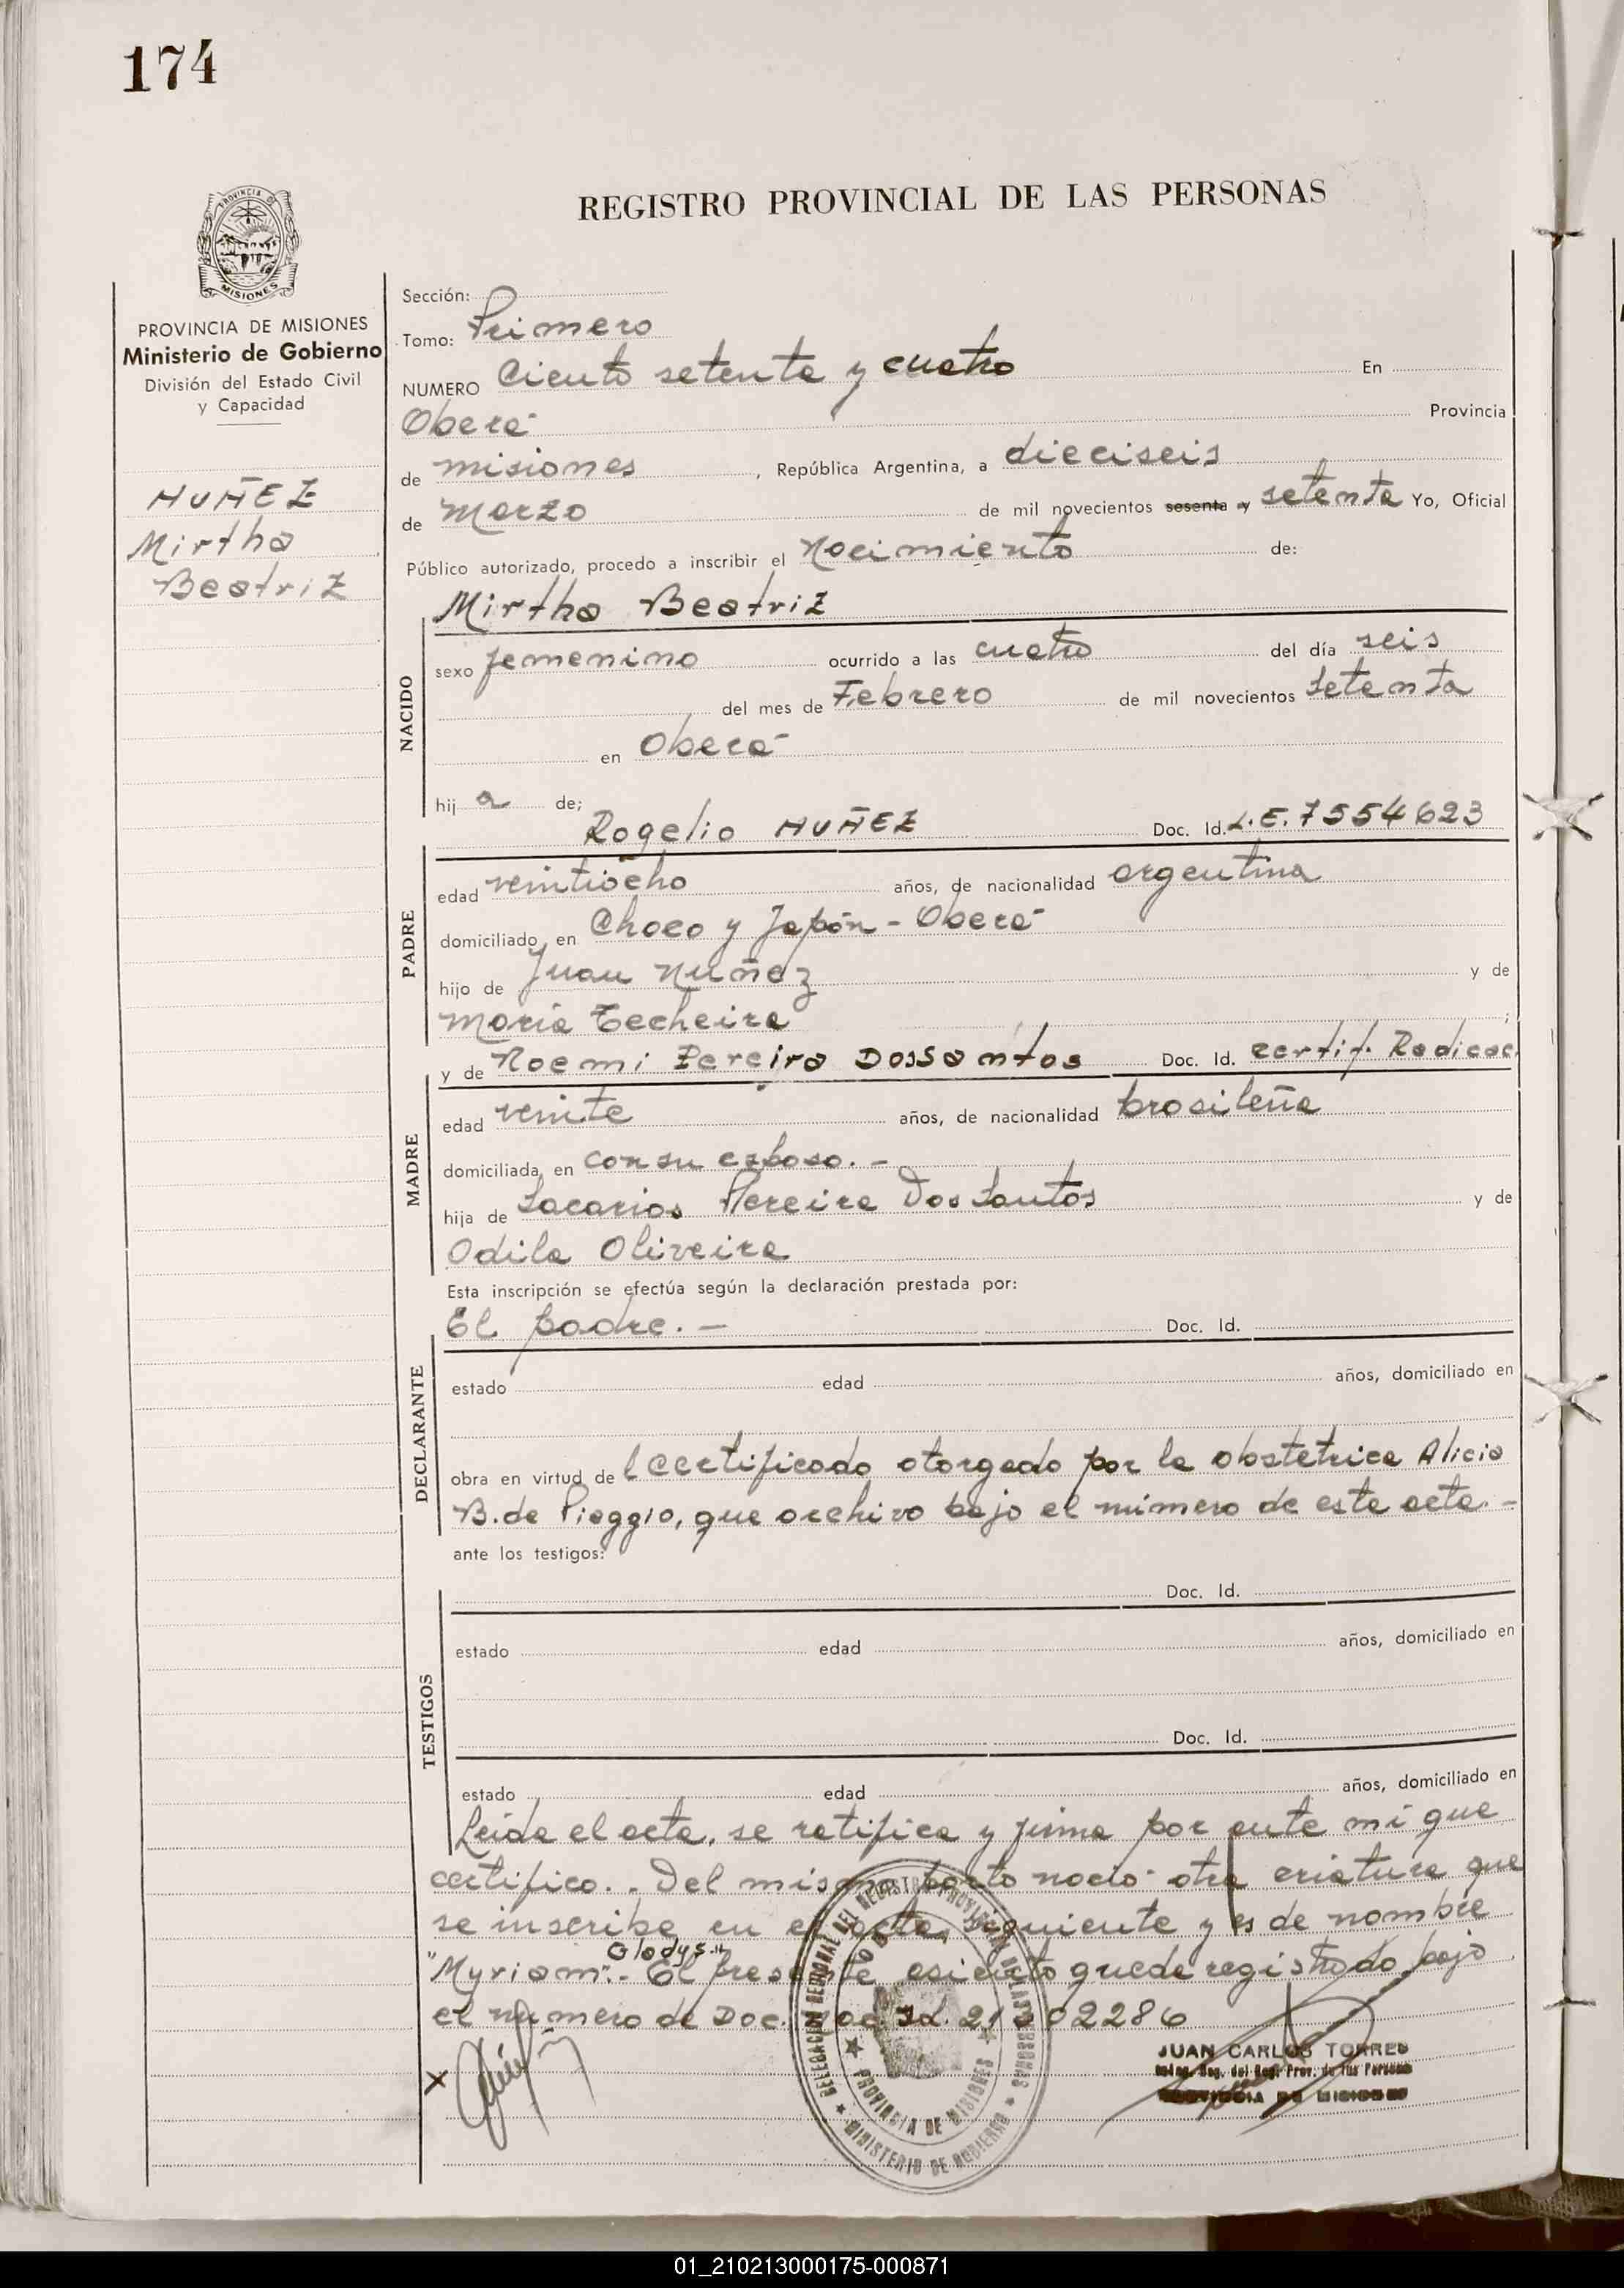 174
PROVINCIA
MISIONES
REGISTRO PROVINCIAL DE LAS PERSONAS
PROVINCIA DE MISIONES
Ministerio de Gobierno
División del Estado Civil
y Capacidad
NUÑEZ
Mirtha
Beatriz
Sección:
Tomo: Primero
NUMERO Ciento setenta y cuatro En
Oberá Provincia
de misiones , República Argentina, a dieciseis
de Marzo de mil novecientos sesenta y setenta Yo, Oficial
Público autorizado, procedo a inscribir el Nacimiento de:
Mirtha Beatriz
NACIDO
sexo femenino ocurrido a las cuatro del día seis
del mes de Febrero de mil novecientos setenta
en Oberá
hij a de;
Rogelio NUÑEZ Doc. Id. L.E. 7554623
PADRE
edad veintiocho años, de nacionalidad argentina
domiciliado en Chaco y Japón - Oberá
hijo de Juan Nuñez y de
María Techeira ;
y de Noemi Pereira Dossantos Doc. Id. certif. Radicac.
MADRE
edad veinte años, de nacionalidad brasileña
domiciliada en con su esposo. -
hija de Sacarias Pereira Dos Santos y de
Odila Oliveira
Esta inscripción se efectúa según la declaración prestada por:
El padre. - Doc. Id.
DECLARANTE
estado edad años, domiciliado en
obra en virtud de l certificado otorgado por la obstetrica Alicia
B. de Piaggio, que archivo bajo el número de este acta. -
ante los testigos:
Doc. Id.
TESTIGOS
estado edad años, domiciliado en
Doc. Id.
estado edad años, domiciliado en
Leída el acta, se ratifica y firma por ante mí que
certifico. - Del mismo parto nació otra criatura que
se inscribe en el acta siguiente y es de nombre
Gladys"
"Myriam". - El presente asiento queda registrado bajo
el numero de Doc. Nac. Id. 21302286
DELEGACION REGIONAL DEL REGISTRO PROVINCIAL DE LAS PERSONAS
PROVINCIA DE MISIONES
MINISTERIO DE GOBIERNO
JUAN CARLOS TORRES
PROVINCIA DE MISIONES
01_210213000175-000871